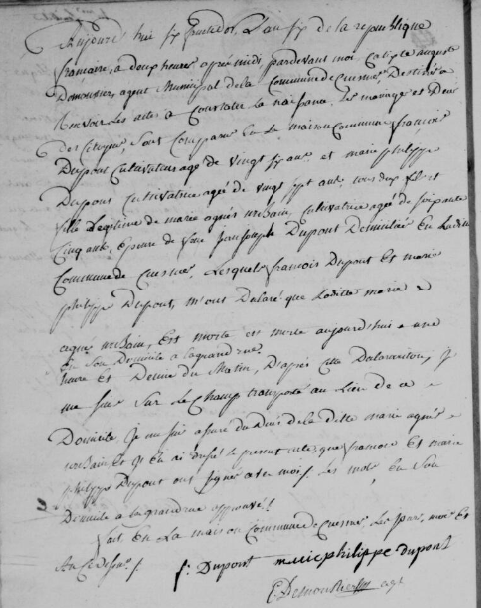 Aujourd'hui six fructidor, L'an six de la republique
francaise, a deux heures apres midi, pardevant moi Calixte auguste
Demoustier, agent Municipal de la Commune de Cuesmes, Destiné a
Recevoir Les actes a Constater La naissance, Les mariages et Deces
des Citoyens, Sont Comparus En La maison Commune, francois
Dupont Cultivateur agé de vingt six ans, et marie philippe
Dupont Cultivatrice agée de vingt sept ans, tous deux fils et
fille Legitime de marie agnes urbain, Cultivatrice agée de soixante
Cinq ans, Epouse de feu jean joseph Dupont Domiciliés En Ladite
Commune de Cuesmes, Lesquels francois Dupont Et marie
philippe Dupont, m'ont Declaré que Laditte marie
agnes urbain, Est morte est morte aujourdhui a une
En Son Domicile a lagrand rue
heure Et Demie du Matin, D'apres Cette Declaration, je
me suis Sur Le Champ transporté au Lieu de ce
Domicile, je me suis assuré du Decès de la Ditte marie agnes
urbain Et j'En ai Dressé Le present acte, que francois Et marie
philippe Dupont ont signés avec moi, Les mots, En Son
Domicile a lagrand rue approuvé
fait En La maison Commune de Cuesmes Les jour, mois Et
An
f: Dupont marie philippe dupont
C Demoustier agt